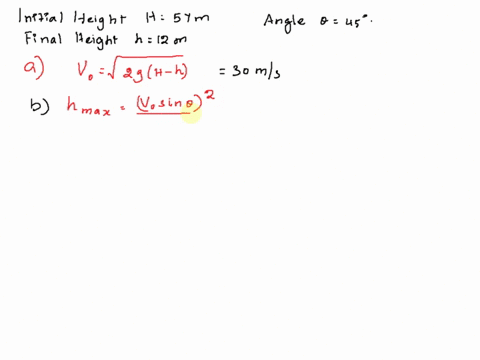 Initial Height H = 57m Angle θ = 45°.
Final Height h = 12m
a) V₀ = √2g(H-h) = 30 m/s
b) h max = (V₀ sinθ)²